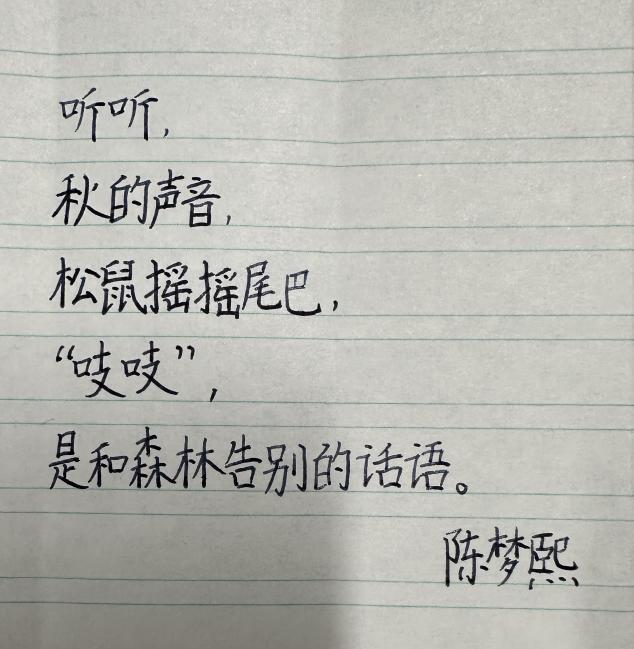 听听，
秋的声音，
松鼠摇摇尾巴，
“吱吱”，
是和森林告别的话语。
陈梦熙